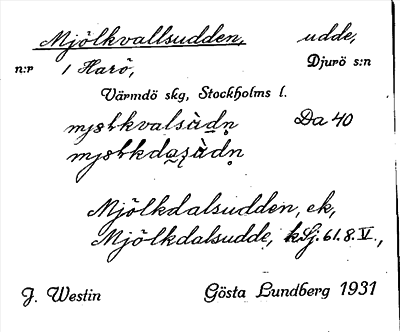 Mjölkvallsudden, udde,
n:r 1 Harö, Djurö s:n
Värmdö skg, Stockholms l.
Da 40
Mjölkdalsudden, ek,
Mjölkdalsudde, kSj. 61.8.V.,
J. Westin Gösta Lundberg 1931